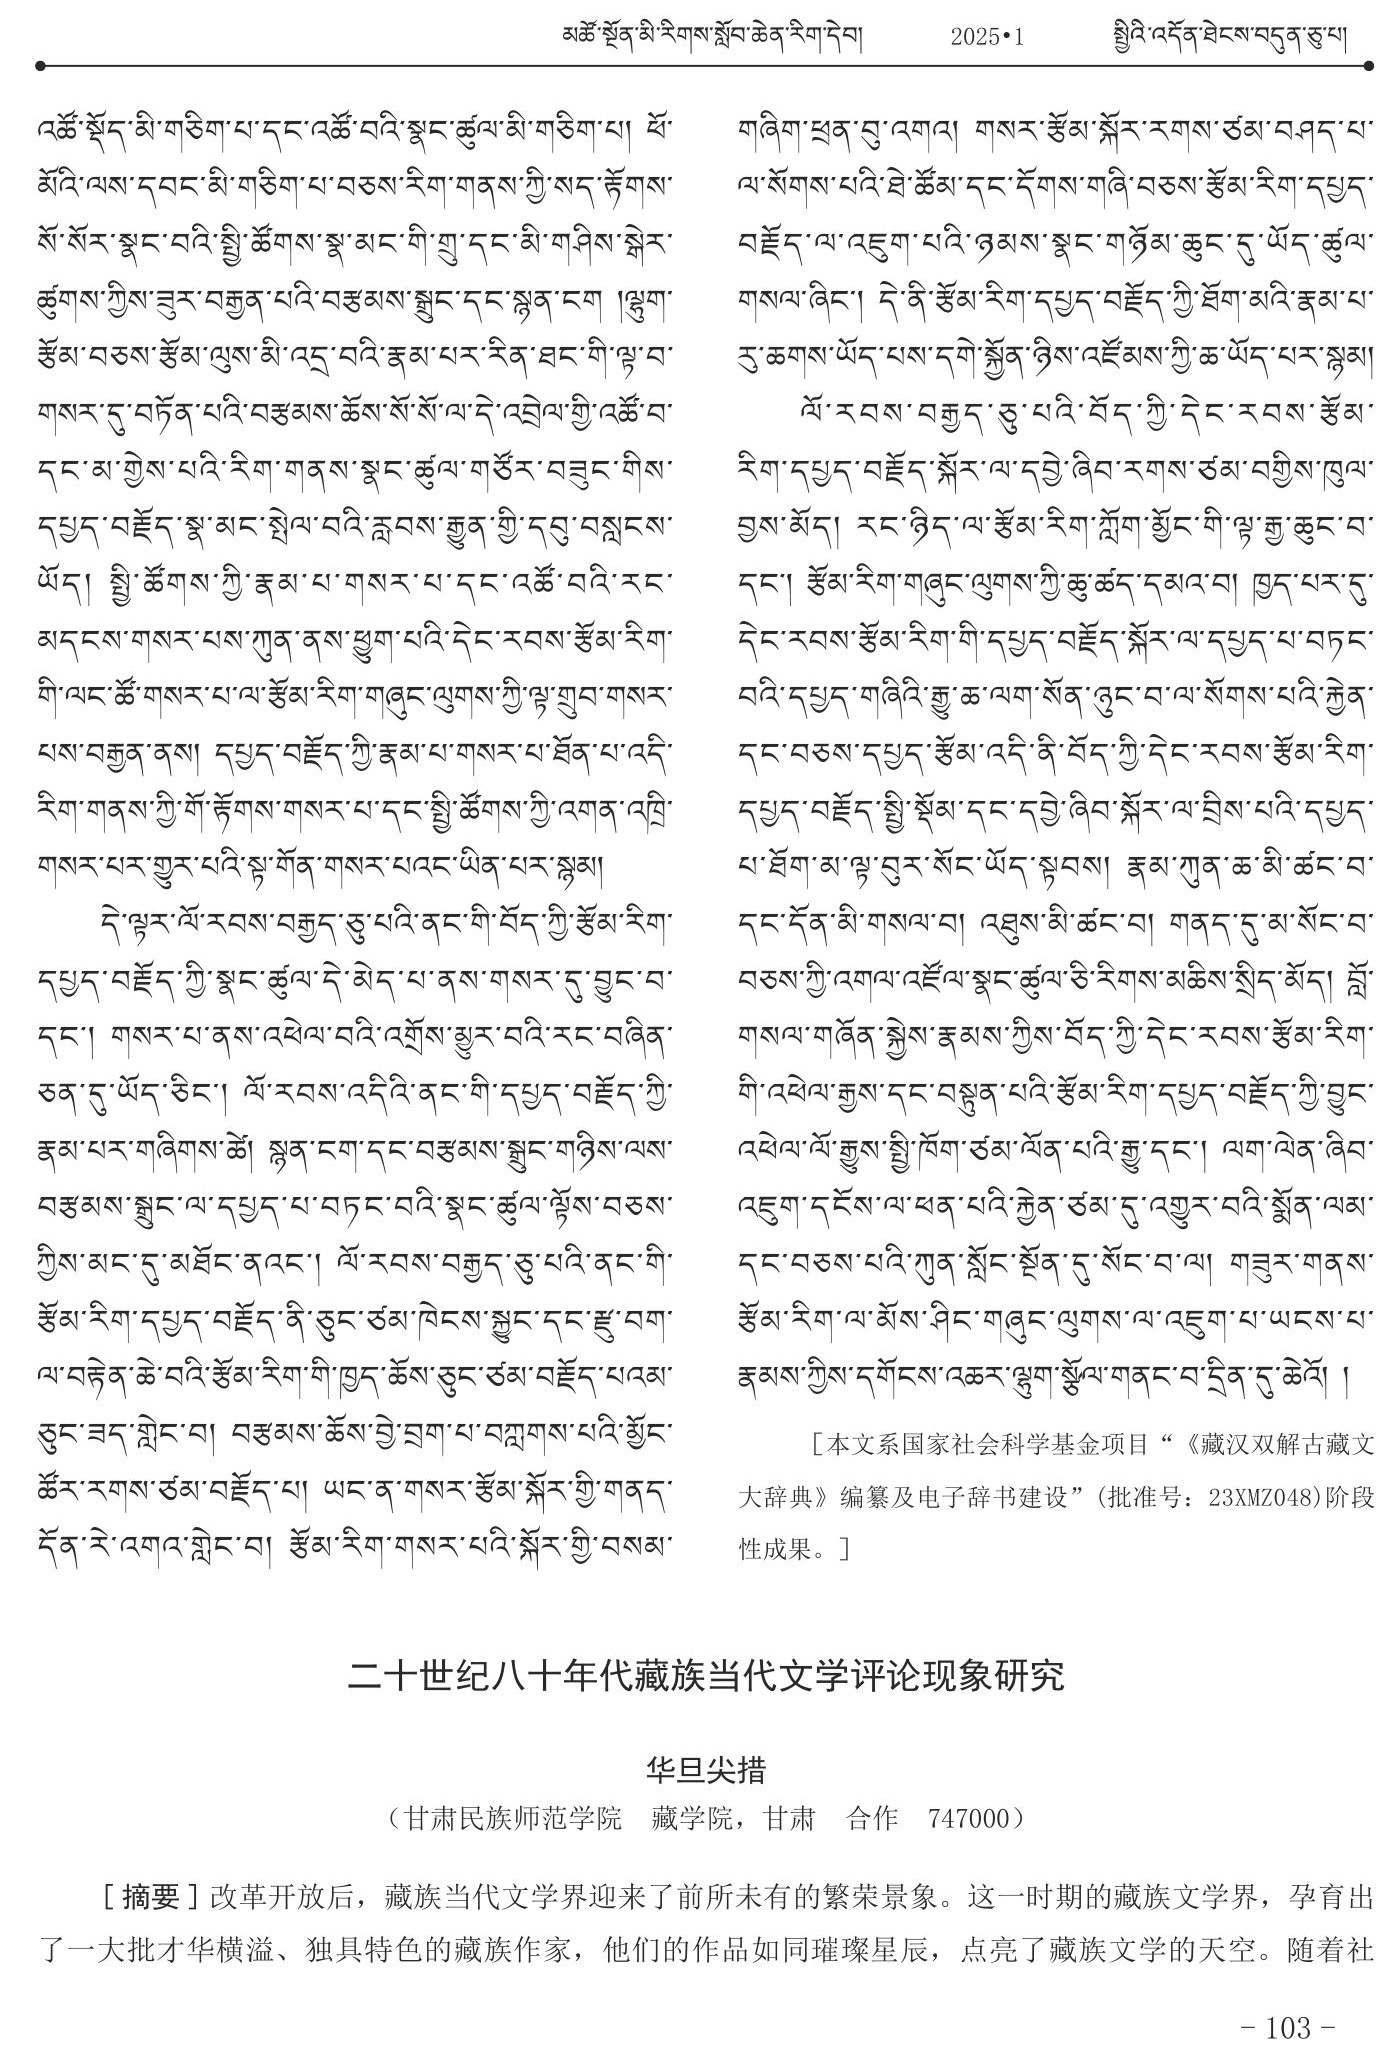 མཚོ་སྔོན་མི་རིགས་སློབ་ཆེན་རིག་དེབ། 2025•1 སྤྱིའི་འདོན་ཐེངས་བདུན་ཅུ་པ།
འཚོ་སྡོད་མི་གཅིག་པ་དང་འཚོ་བའི་སྣང་ཚུལ་མི་གཅིག་པ། ཕོ་
མོའི་ལས་དབང་མི་གཅིག་པ་བཅས་རིག་གནས་ཀྱི་སད་རྟོགས་
སོ་སོར་སྣང་བའི་སྤྱི་ཚོགས་སྣ་མང་གི་གྲུ་དང་མི་གཤིས་སྒེར་
ཚུགས་ཀྱིས་ཟུར་བརྒྱན་པའི་བརྩམས་སྒྲུང་དང་སྙན་ངག །ལྷུག་
རྩོམ་བཅས་རྩོམ་ལུས་མི་འདྲ་བའི་རྣམ་པར་རིན་ཐང་གི་ལྟ་བ་
གསར་དུ་བཏོན་པའི་བརྩམས་ཆོས་སོ་སོ་ལ་དེ་འབྲེལ་གྱི་འཚོ་བ་
དང་མ་གྱེས་པའི་རིག་གནས་སྣང་ཚུལ་གཙོར་བཟུང་གིས་
དཔྱད་བརྗོད་སྣ་མང་སྤེལ་བའི་རླབས་རྒྱུན་གྱི་དབུ་བསླངས་
ཡོད། སྤྱི་ཚོགས་ཀྱི་རྣམ་པ་གསར་པ་དང་འཚོ་བའི་རང་
མདངས་གསར་པས་ཀུན་ནས་ཕྱུག་པའི་དེང་རབས་རྩོམ་རིག་
གི་ལང་ཚོ་གསར་པ་ལ་རྩོམ་རིག་གཞུང་ལུགས་ཀྱི་ལྟ་གྲུབ་གསར་
པས་བརྒྱན་ནས། དཔྱད་བརྗོད་ཀྱི་རྣམ་པ་གསར་པ་ཐོན་པ་འདི་
རིག་གནས་ཀྱི་གོ་རྟོགས་གསར་པ་དང་སྤྱི་ཚོགས་ཀྱི་འགན་འཁྲི་
གསར་པར་གྱུར་པའི་སྟ་གོན་གསར་པའང་ཡིན་པར་སྙམ།
དེ་ལྟར་ལོ་རབས་བརྒྱད་ཅུ་པའི་ནང་གི་བོད་ཀྱི་རྩོམ་རིག་
དཔྱད་བརྗོད་ཀྱི་སྣང་ཚུལ་དེ་མེད་པ་ནས་གསར་དུ་བྱུང་བ་
དང་། གསར་པ་ནས་འཕེལ་བའི་འགྲོས་མྱུར་བའི་རང་བཞིན་
ཅན་དུ་ཡོད་ཅིང་། ལོ་རབས་འདིའི་ནང་གི་དཔྱད་བརྗོད་ཀྱི་
རྣམ་པར་གཞིགས་ཚེ། སྙན་ངག་དང་བརྩམས་སྒྲུང་གཉིས་ལས་
བརྩམས་སྒྲུང་ལ་དཔྱད་པ་བཏང་བའི་སྣང་ཚུལ་ལྟོས་བཅས་
ཀྱིས་མང་དུ་མཐོང་ནའང་། ལོ་རབས་བརྒྱད་ཅུ་པའི་ནང་གི་
རྩོམ་རིག་དཔྱད་བརྗོད་ནི་ཅུང་ཙམ་ཁེངས་སྐྱུང་དང་ཛུ་བག་
ལ་བརྟེན་ཆེ་བའི་རྩོམ་རིག་གི་ཁྱད་ཆོས་ཅུང་ཙམ་བརྗོད་པའམ་
ཅུང་ཟད་གླེང་བ། བརྩམས་ཆོས་བྱེ་བྲག་པ་བཀླགས་པའི་མྱོང་
ཚོར་རགས་ཙམ་བརྗོད་པ། ཡང་ན་གསར་རྩོམ་སྐོར་གྱི་གནད་
དོན་རེ་འགའ་གླེང་བ། རྩོམ་རིག་གསར་པའི་སྐོར་གྱི་བསམ་
གཞིག་ཕྲན་བུ་འགའ། གསར་རྩོམ་སྐོར་རགས་ཙམ་བཤད་པ་
ལ་སོགས་པའི་ཐེ་ཚོམ་དང་དོགས་གཞི་བཅས་རྩོམ་རིག་དཔྱད་
བརྗོད་ལ་འཇུག་པའི་ཉམས་སྣང་གཉོམ་ཆུང་དུ་ཡོད་ཚུལ་
གསལ་ཞིང་། དེ་ནི་རྩོམ་རིག་དཔྱད་བརྗོད་ཀྱི་ཐོག་མའི་རྣམ་པ་
རུ་ཆགས་ཡོད་པས་དགེ་སྐྱོན་ཉིས་འཛོམས་ཀྱི་ཆ་ཡོད་པར་སྙམ།
ལོ་རབས་བརྒྱད་ཅུ་པའི་བོད་ཀྱི་དེང་རབས་རྩོམ་
རིག་དཔྱད་བརྗོད་སྐོར་ལ་དབྱེ་ཞིབ་རགས་ཙམ་བགྱིས་ཁུལ་
བྱས་མོད། རང་ཉིད་ལ་རྩོམ་རིག་ཀློག་མྱོང་གི་ལྟ་རྒྱ་ཆུང་བ་
དང་། རྩོམ་རིག་གཞུང་ལུགས་ཀྱི་ཆུ་ཚད་དམའ་བ། ཁྱད་པར་དུ་
དེང་རབས་རྩོམ་རིག་གི་དཔྱད་བརྗོད་སྐོར་ལ་དཔྱད་པ་བཏང་
བའི་དཔྱད་གཞིའི་རྒྱུ་ཆ་ལག་སོན་ཉུང་བ་ལ་སོགས་པའི་རྐྱེན་
དང་བཅས་དཔྱད་རྩོམ་འདི་ནི་བོད་ཀྱི་དེང་རབས་རྩོམ་རིག་
དཔྱད་བརྗོད་སྤྱི་སྡོམ་དང་དབྱེ་ཞིབ་སྐོར་ལ་བྲིས་པའི་དཔྱད་
པ་ཐོག་མ་ལྟ་བུར་སོང་ཡོད་སྟབས། རྣམ་ཀུན་ཆ་མི་ཚང་བ་
དང་དོན་མི་གསལ་བ། འཐུས་མི་ཚང་བ། གནད་དུ་མ་སོང་བ་
བཅས་ཀྱི་འགལ་འཛོལ་སྣང་ཚུལ་ཅི་རིགས་མཆིས་སྲིད་མོད། བློ་
གསལ་གཞོན་སྐྱེས་རྣམས་ཀྱིས་བོད་ཀྱི་དེང་རབས་རྩོམ་རིག་
གི་འཕེལ་རྒྱས་དང་བསྟུན་པའི་རྩོམ་རིག་དཔྱད་བརྗོད་ཀྱི་བྱུང་
འཕེལ་ལོ་རྒྱུས་སྤྱི་ཁོག་ཙམ་ལོན་པའི་རྒྱུ་དང་། ལག་ལེན་ཞིབ་
འཇུག་དངོས་ལ་ཕན་པའི་རྐྱེན་ཙམ་དུ་འགྱུར་བའི་སྨོན་ལམ་
དང་བཅས་པའི་ཀུན་སློང་སྔོན་དུ་སོང་བ་ལ། གཟུར་གནས་
རྩོམ་རིག་ལ་མོས་ཤིང་གཞུང་ལུགས་ལ་འཇུག་པ་ཡངས་པ་
རྣམས་ཀྱིས་དགོངས་འཆར་ལྷུག་སྩོལ་གནང་བ་དྲིན་དུ་ཆེའོ། །
[本文系国家社会科学基金项目“《藏汉双解古藏文
大辞典》编纂及电子辞书建设”(批准号：23XMZ048)阶段
性成果。]
二十世纪八十年代藏族当代文学评论现象研究
华旦尖措
（甘肃民族师范学院 藏学院，甘肃 合作 747000）
[摘要]改革开放后，藏族当代文学界迎来了前所未有的繁荣景象。这一时期的藏族文学界，孕育出
了一大批才华横溢、独具特色的藏族作家，他们的作品如同璀璨星辰，点亮了藏族文学的天空。随着社
- 103 -